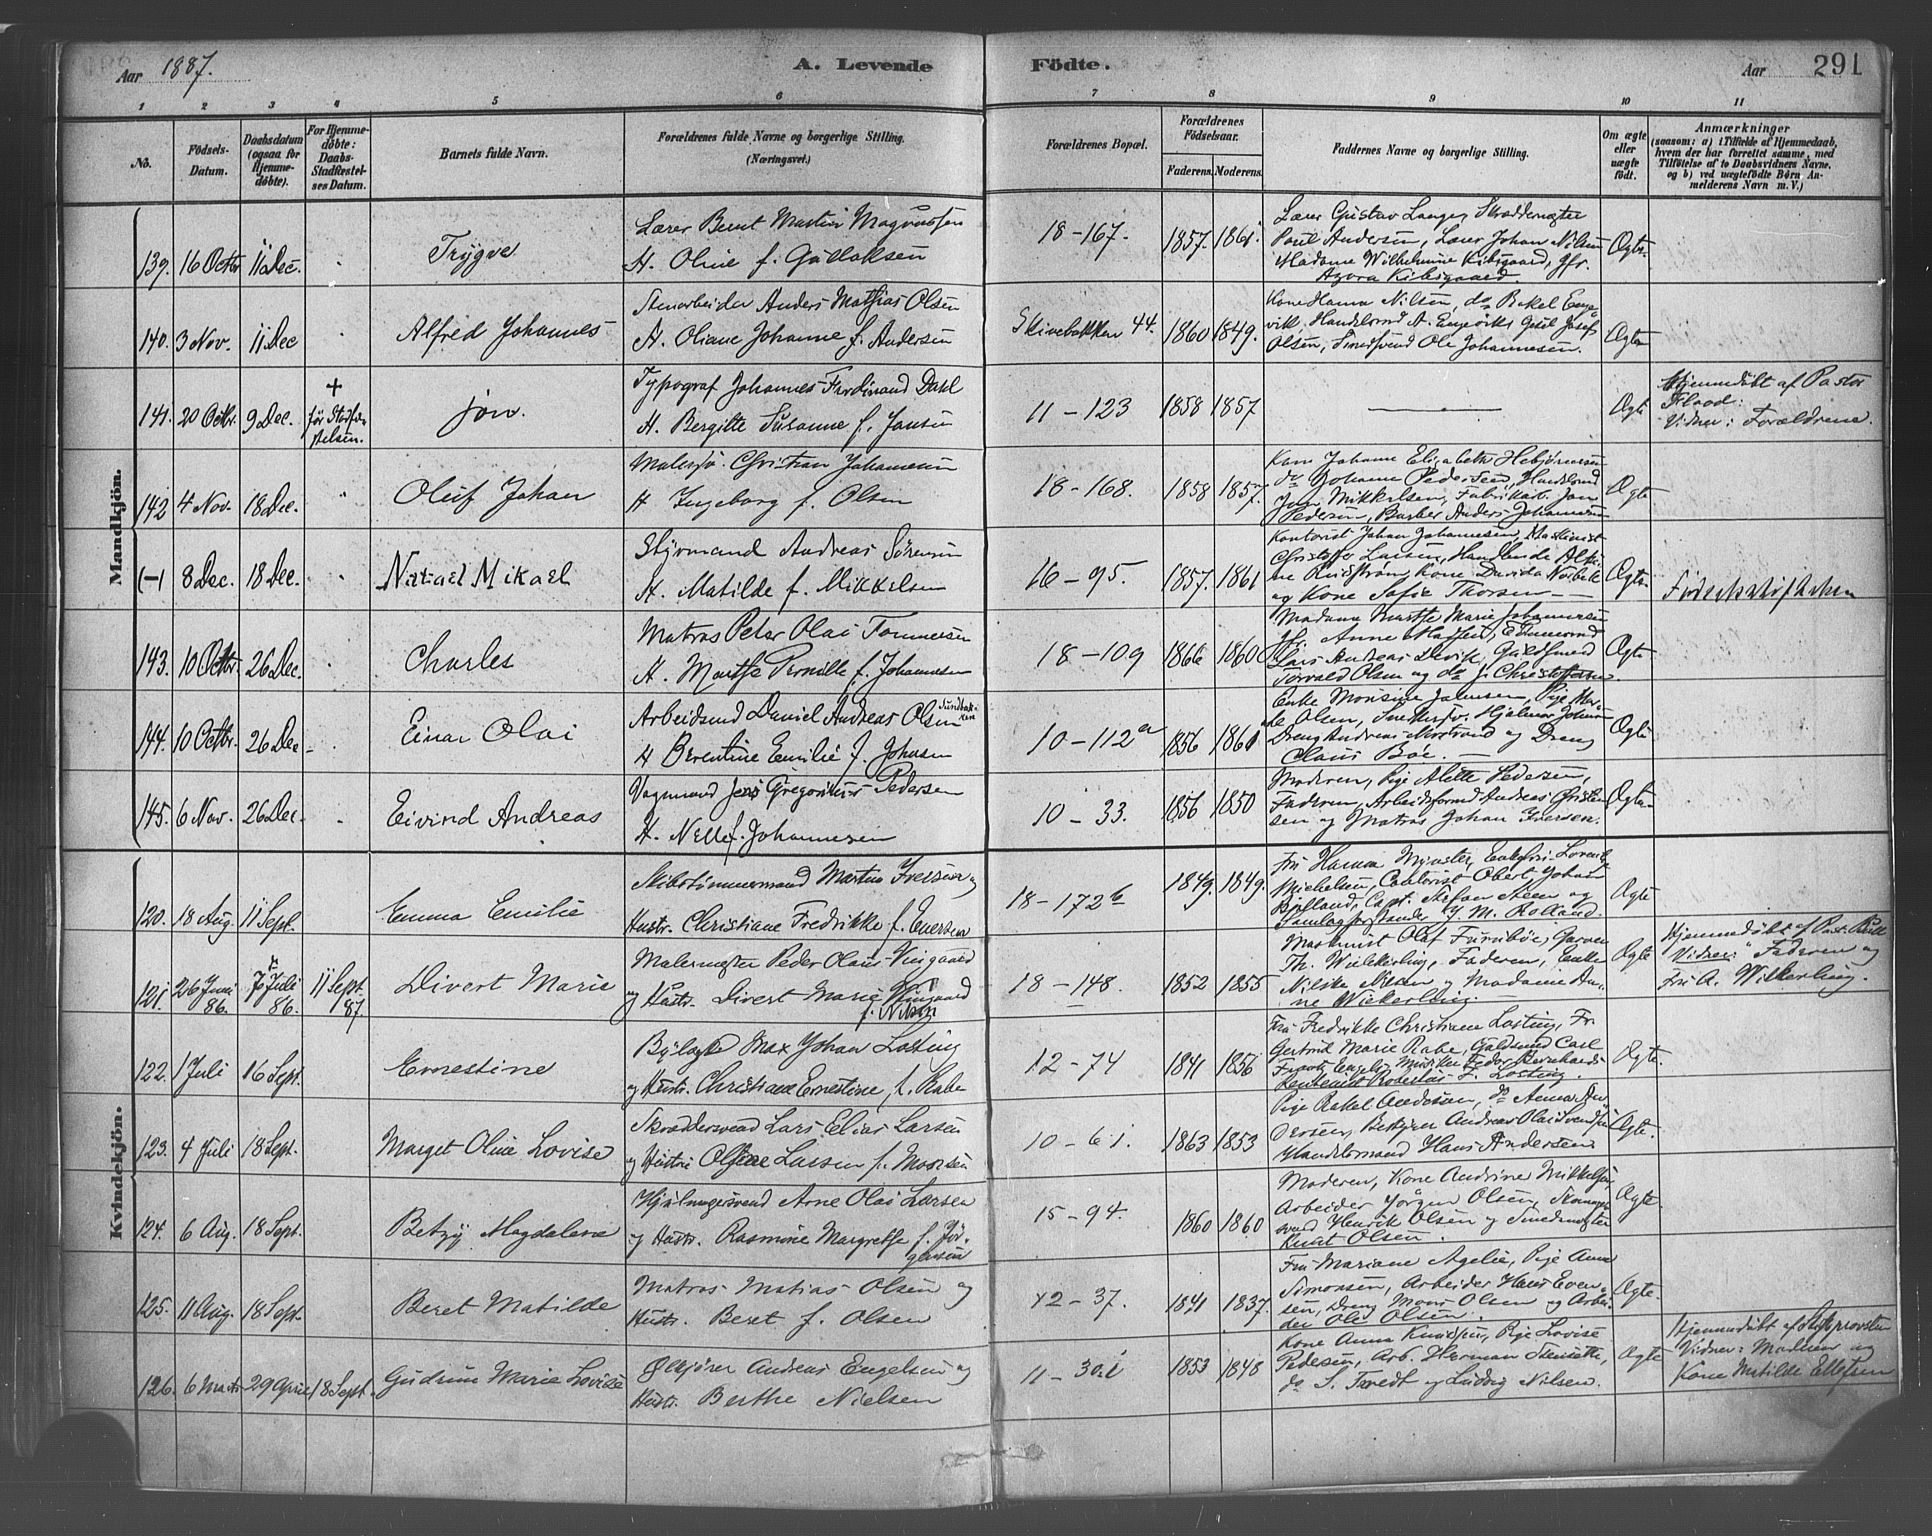 Aar 1887. A. Levende Födte. Aar 291
1 2 3 4 5 6 7 8 9 10 11
No.
Födsels-
Datum.
Daabsdatum
(ogsaa for
Hjemme-
döbte).
For Hjemme-
döbte:
Daabs-
Stadfæstel-
ses Datum.
Barnets fulde Navn.
Forældrenes fulde Navne og borgerlige Stilling.
(Næringsvei.)
Forældrenes Bopæl.
Forældrenes
Födselsaar.
Faderens. Moderens.
Faddernes Navne og borgerlige Stilling.
Om ægte
eller
uægte
födt.
Anmærkninger
(saasom: a) i Tilfælde af Hjemmedaab,
hvem der har forrettet samme, med
Tilföielse af to Daabsvidners Navne,
og b) ved uægtefödte Börn An-
melderens Navn m. V.)
Mandkjön.
139. 16 Octbr 11 Dec. Trygve
Lærer Bernt Martin
H. Oline f. Gullaksen
18-167. 1857. 1861.
Lærer Gustav Lange, Skræddermester
Poul Andersen, Lærer Johan Nilsen
Madame Wilhelmine Kibsgaard, Jfr.
Azora Kibsgaard
Ægte
140. 3 Nov. 11 Dec Alfred Johannes
Stenarbeider Anders Mathias Olsen
H. Oliane Johanne f. Andersen
Skivebakken 44. 1860 1849.
Kone Hanna Nilsen, do Rakel Enge-
vik, Handelsmd A. Engevik, Josef
Olsen, Smedsvend Ole Johannesen.
Ægte
141. 20 Octbr. 9 Dec. + før Stadfæ-
stelsen.
Jon.
Typograf Johannes Ferdinand Dahl
H. Bergitte Susanne f. Jansen
11-123 1858 1857
Ægte
Hjemmedøbt af Pastor
Flood.
Vidner: Forældrene.
142 4 Nov. 18 Dec. Oluf Johan
Malersv. Christian Johannesen
H Ingeborg f. Olsen
18-168. 1858 1857.
Kone Johanne Elisabeth
do Johanne Pedersen, Handelsmd
Mikkelsen, Fabrikarb. Jan
Pedersen, Barber Anders Johannesen
Ægte
(-) 8 Dec. 18 Dec. Natael Mikael
Styrmand Andreas Sørensen
H. Matilde f. Mikkelsen
16-95. 1857. 1861
Kontorist Johan Johannesen, Maskinist
Christoffer Larsen, Handlende
Kone Davida
og Kone Sofie Thorsen
Ægte
Fødselsstiftelsen
143. 10 Octbr. 26 Dec. Charles
Matros Peter Olai Tommesen
H. Marthe Pernille f. Johannesen
18-109 1866 1860
Madame Marthe Marie Johannesen
Anne Madsen,
Lars Andreas Guldsmed
Torvald Olsen og do J. Christoffersen.
Ægte
144. 10 Octbr. 26 Dec. Einar Olai
Arbeidsmd Daniel Andreas Olsen
H Berentine Emilie f. Johnsen
10-112a 1856 1861
Enke Monsine Pige
Olsen, Snedkersv. Hjalmar
Dreng Andreas og Dreng
Claus Bøe.
Ægte
145. 6 Nov. 26 Dec. Eivind Andreas
Vognmand Jens Gregorius Pedersen
H. Nelle f. Johannesen
10-33. 1856 1850
Moderen, Pige Alette Pedersen,
Faderen, Arbeidsformd Andreas Christen-
sen og Matros Johan Iversen.
Ægte
Kvindekjön.
120. 18 Aug. 11 Sept. Emma Emilie
Skibstimmermand Martin Iversen og
Hustr. Christiane Fredrikke f. Evensen
18-172b 1849. 1849.
Fru Hanna Mynster, Enkefru
Michelsen, Contorist Obert, Johan
Bjelland, Capt. Stefan Steen og
J. M. Rolland.
Ægte
121. 26 Juni 86. 7 Juli 86. 11 Sept. 87. Divert Marie
Malermester Peder Olaus Viigaard
og Hustr. Divert Marie Viingaard
f. Nilsen
18-148. 1852 1855
Maskinist Olaf Furubøe, Garver
Th. Wilkerling, Faderen, Enke
Nilsen og Madame
Ægte
Hjemmedøbt af Past.
Vidner: Faderen og
Fru A. Wilkerling.
122. 1 Juli 16 Sept. Ernestine
Bylæge Max Johan Losting
og Hustr. Christiane Ernestine f. Rabe
12-74 1841 1856
Fru Fredrikke Christiane Losting, Fr
Gertrud Marie Rabe, Guldsmed Carl
F. Losting.
Ægte.
123. 4 Juli 18 Sept. Marget Oline Lovise
Skræddersvend Lars Elias Larsen
og Hustru Larsen f. Monsen
10-61. 1863 1853
Pige Rakel Andersen, do Anna An-
dersen, Andreas Olai
Handelsmand Hans Andersen
Ægte.
124. 6 Aug. 18 Sept. Betzy Magdalena
Arne Olai Larsen
og Hustr. Rasmine Margrethe f. Jør-
gensen
15-94. 1860 1860
Moderen, Kone Andrine Mikkelsen
Arbeider Jørgen Olsen,
svend Henrik Olsen og Smedmester
Knut Olsen.
Ægte.
125. 11 Aug. 18 Sept. Beret Matilde
Matros Matias Olsen og
Hustr. Beret f. Olsen
12-37. 1841 1837.
Fru Mariane Agelie, Pige Anna
Simonsen, Arbeider Hans Even-
sen, Dreng Mons Olsen og Arbei-
der Ole Olsen.
Ægte.
126. 6 Marts 29 April 18 Sept. Gudrun Marie Lovise
Ølkjører Andreas Engelsen og
Hustr. Berthe Nielsen
11-30 1853 1848
Kone Anna Knudsen, Pige Lovise
Pedersen, Arb. Herman
do S. og Ludvig Nielsen.
Ægte
Hjemmedøbt af Stiftsprovsten
Vidner: Madsen og
Kone Matilde Ellefsen